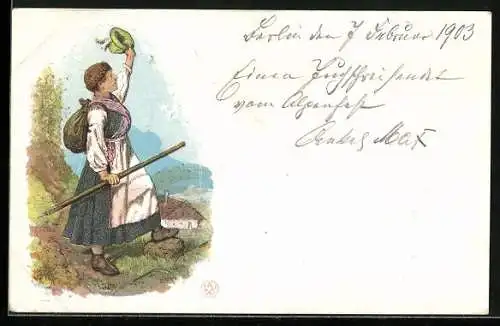 Berlin den 7 Februar 1903
Einen
vom Alpenfest
Max